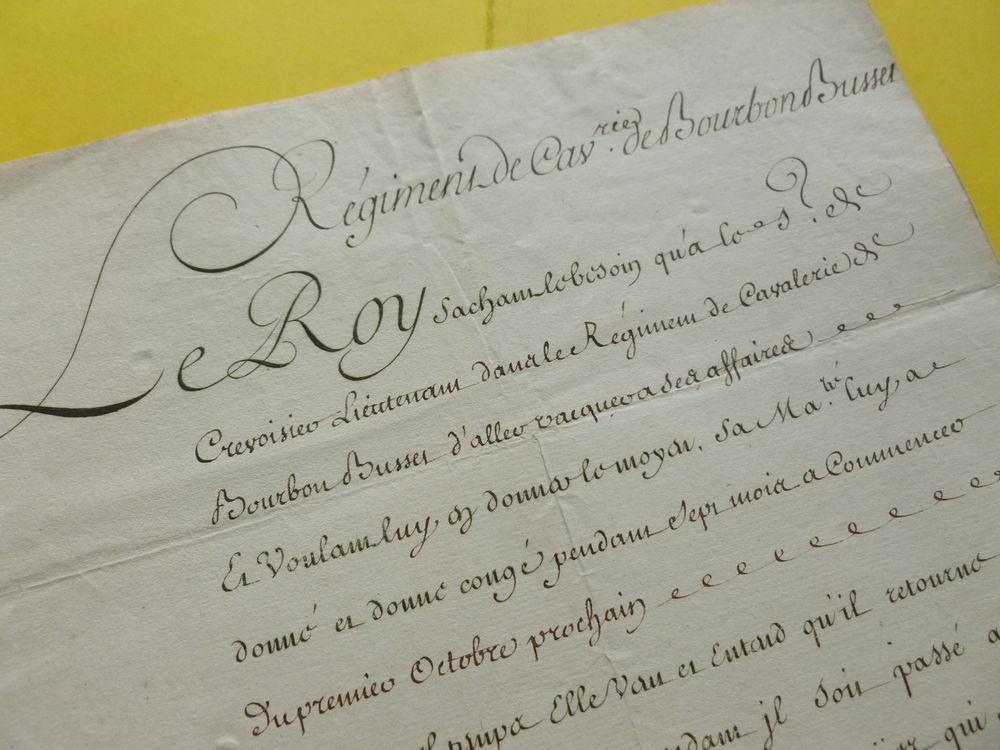 Régiment de Cav.rie de Bourbon Busset
Le Roy Sachant le besoin qu'a le S.r de
Crevoisier Lieutenant dans le Régiment de Cavalerie de
Bourbon Busset d'aller vacquer a ses affaires
Et Voulant luy en donner le moyen, Sa Ma.té luy a
donné et donne congé pendant Sept mois a Commencer
Du premier Octobre prochain
Elle Veut et Entend qu'il retourne
jl soit passé a
qui